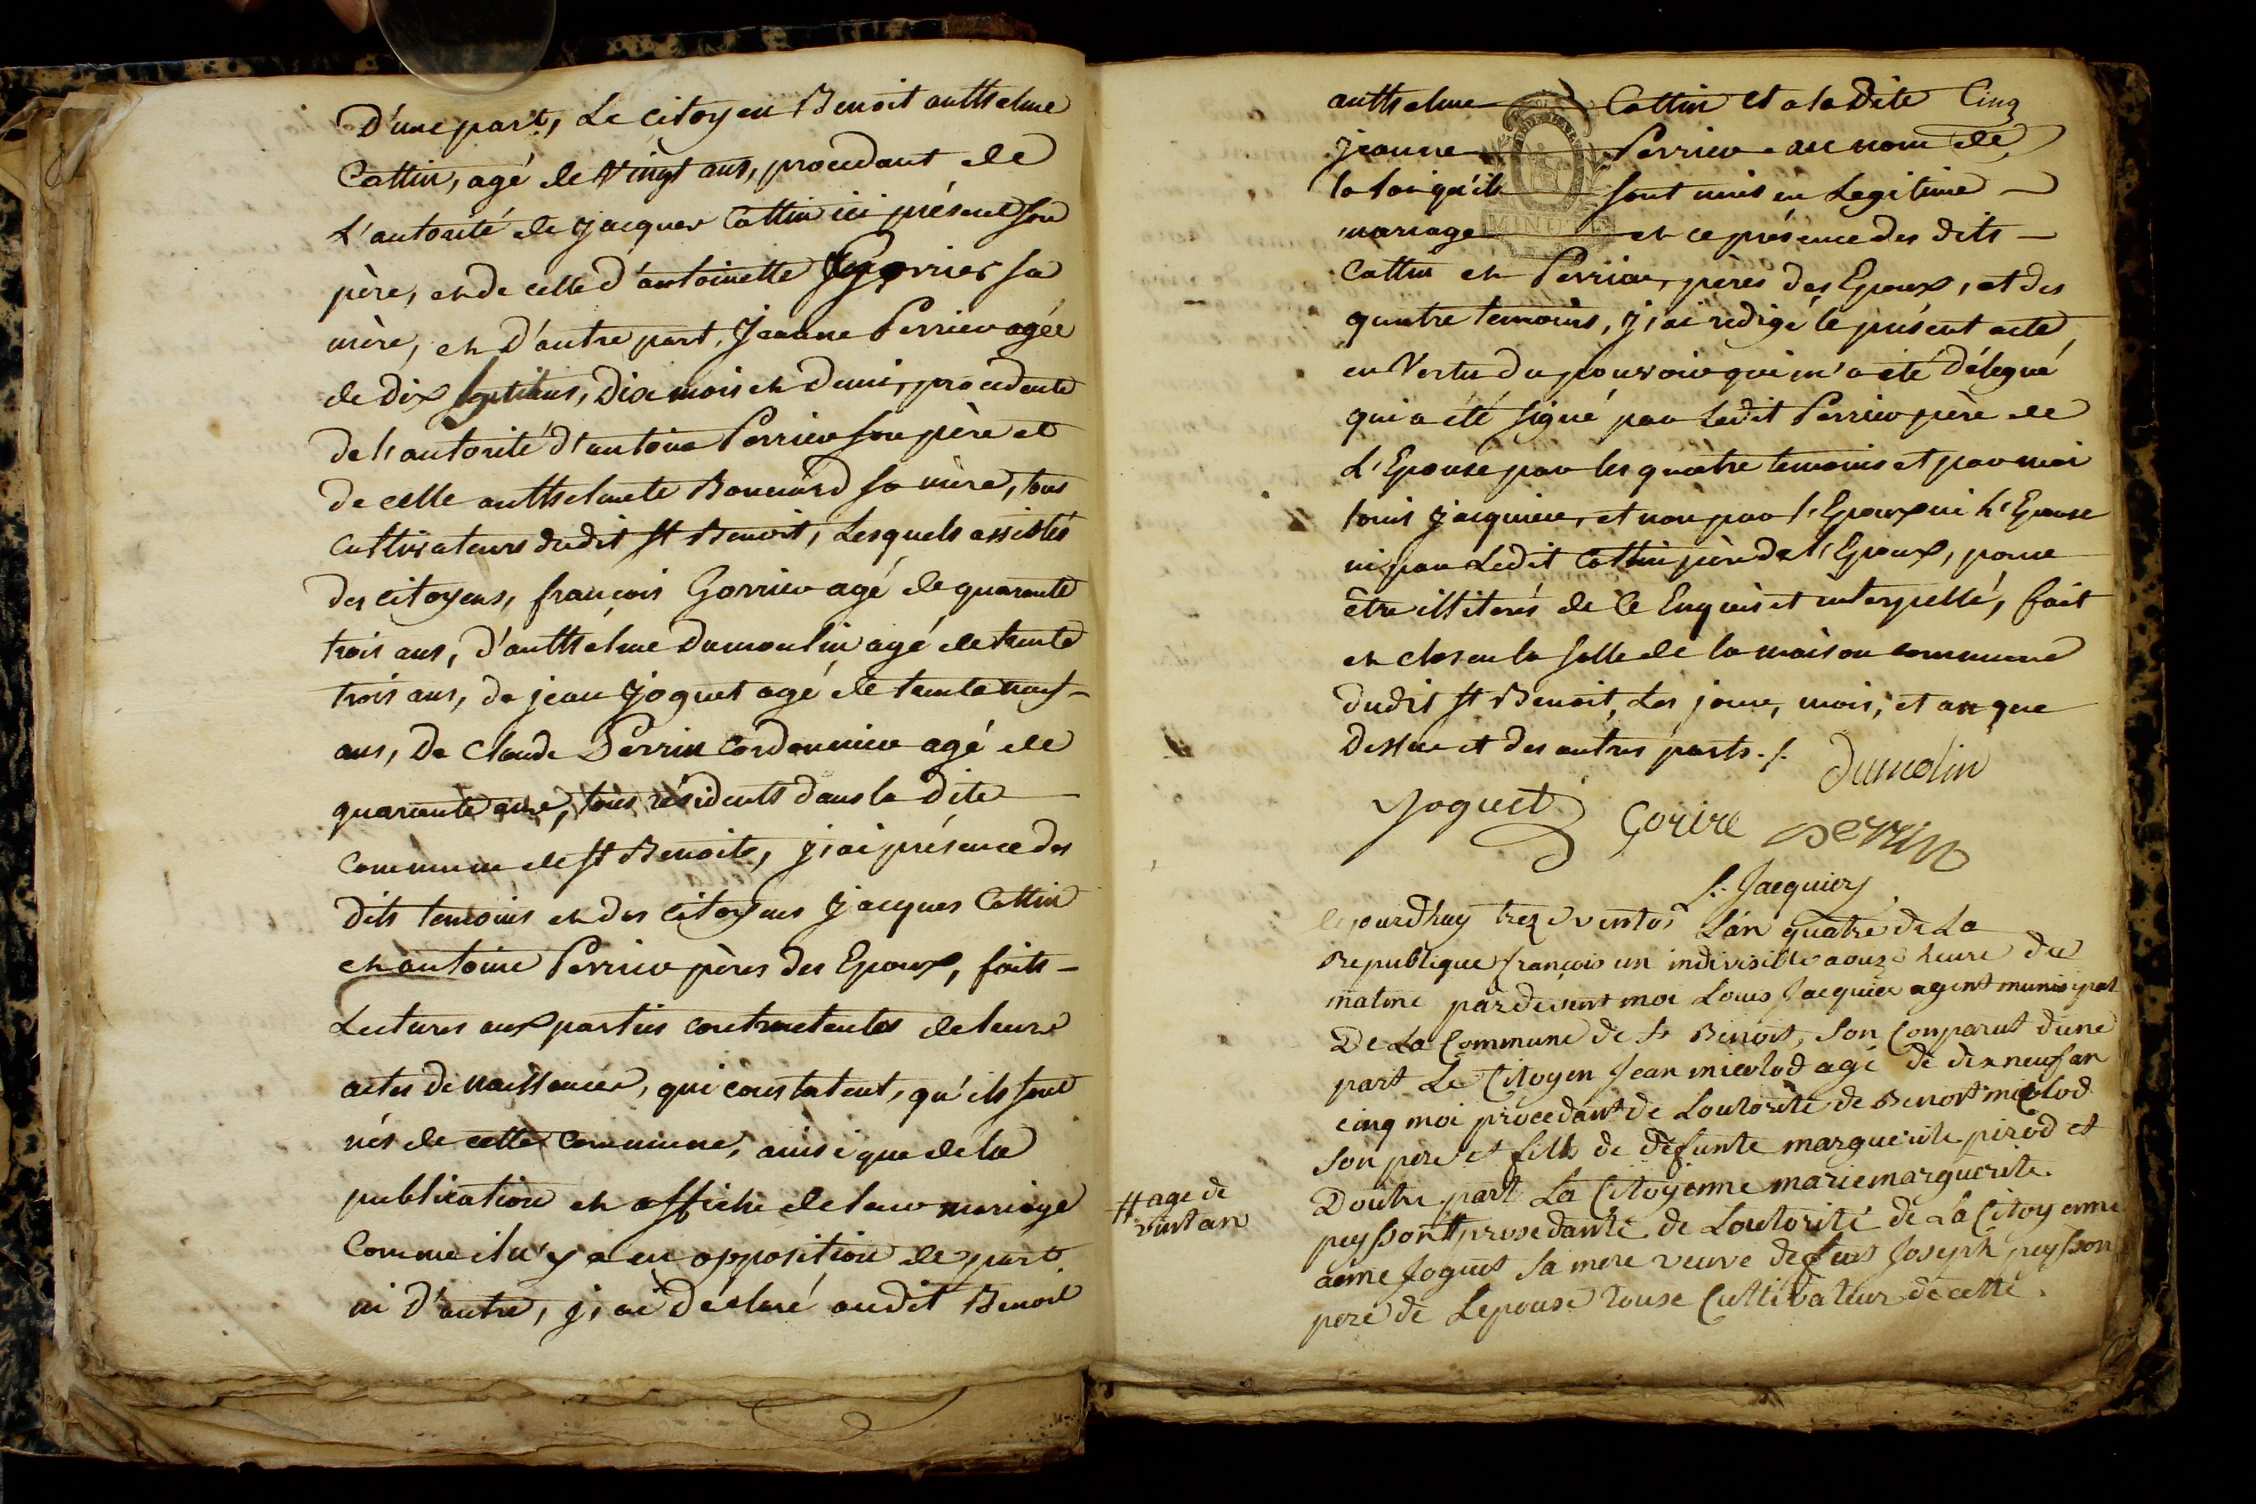 D'une part, Le citoyen Benoit anthelme
Cattin, agé de vingt ans, procedant de
L'autorité de jacques Cattin ici présent son
père, et de celle d'antoinette sa
mère, et d'autre part, Jeanne Perrier agée
de dix sept ans, Dix mois et Demi, procedente
de l'autorité d'antoine Perrier son père et
de celle anthelmete sa mère, tous
cultivateurs dudit st Benoit, Lesquels assistés
des citoyens, françois Gorrier agé de quarante
trois ans, d'anthelme Dumoulin agé de trente
trois ans, de jean Joguet agé de trente neuf -
ans, De Claude Perrin Cordonnier agé de
quarante ans, tous résidents dans la dite
Commune de st Benoit, j'ai présence des
dits temoins et des citoyens jacques Cattin
et antoine Perrier pères des Epoux, faits -
Lectures aux parties contractantes de leurs
actes de naissances, qui constatent, qu'ils sont
nés de cette Commune, ainsi que de la
publication et affiche de leur mariage
Comme il n'y a eu opposition de part
ni D'autre, j'ai déclaré audit Benoit
Cinq
anthelme Cattin et a la Dite
jeanne Perrier au nom de
la loi qu'ils sont unis en Legitime -
mariage et ce présence des dits -
Cattin et Perrier, pères des Epoux, et des
quatre temoins, j'ai redigé le présent acte
en Vertu du pouvoir qui m'a été délegué
qui a été signé par ledit Perrier père de
L'Epouse par les quatre temoins et par moi
Louis jacquier, et non par l'Epoux ni L'Epouse
ni par Ledit Cattin père de l'Epoux, pour
être illiterés de ce Enquis et interpellé, fait
et clos en la salle de la maison commune
dudit st Benoit, Les jour, mois, et an que
Dessus et des autres parts ./.
Dumolin
Joguet Gorire Perrin
L. Jacquier
lejourdhuy treze ventos L'an quatre de La
Republique françois un indivisible a onze heure du
matine pardevent moi Louis Jacquier agent municipal
De La Commune de st Benoit, son Conparut dune
part Le Citoyen Jean micolod agé de dix neuf an
cinq moi procedant de Loutorité de Benoit micolod
son pere et fills de défunte marguerite pirod et
Doutre part La Citoyenne marie marguerite
peysson # prosedante de Loutorité de La Citoyenne
# age de
vint an
aéme Joguet sa mere veuve defeus Joseph peysson
pere de Lepouse touse Cultivateur de cette